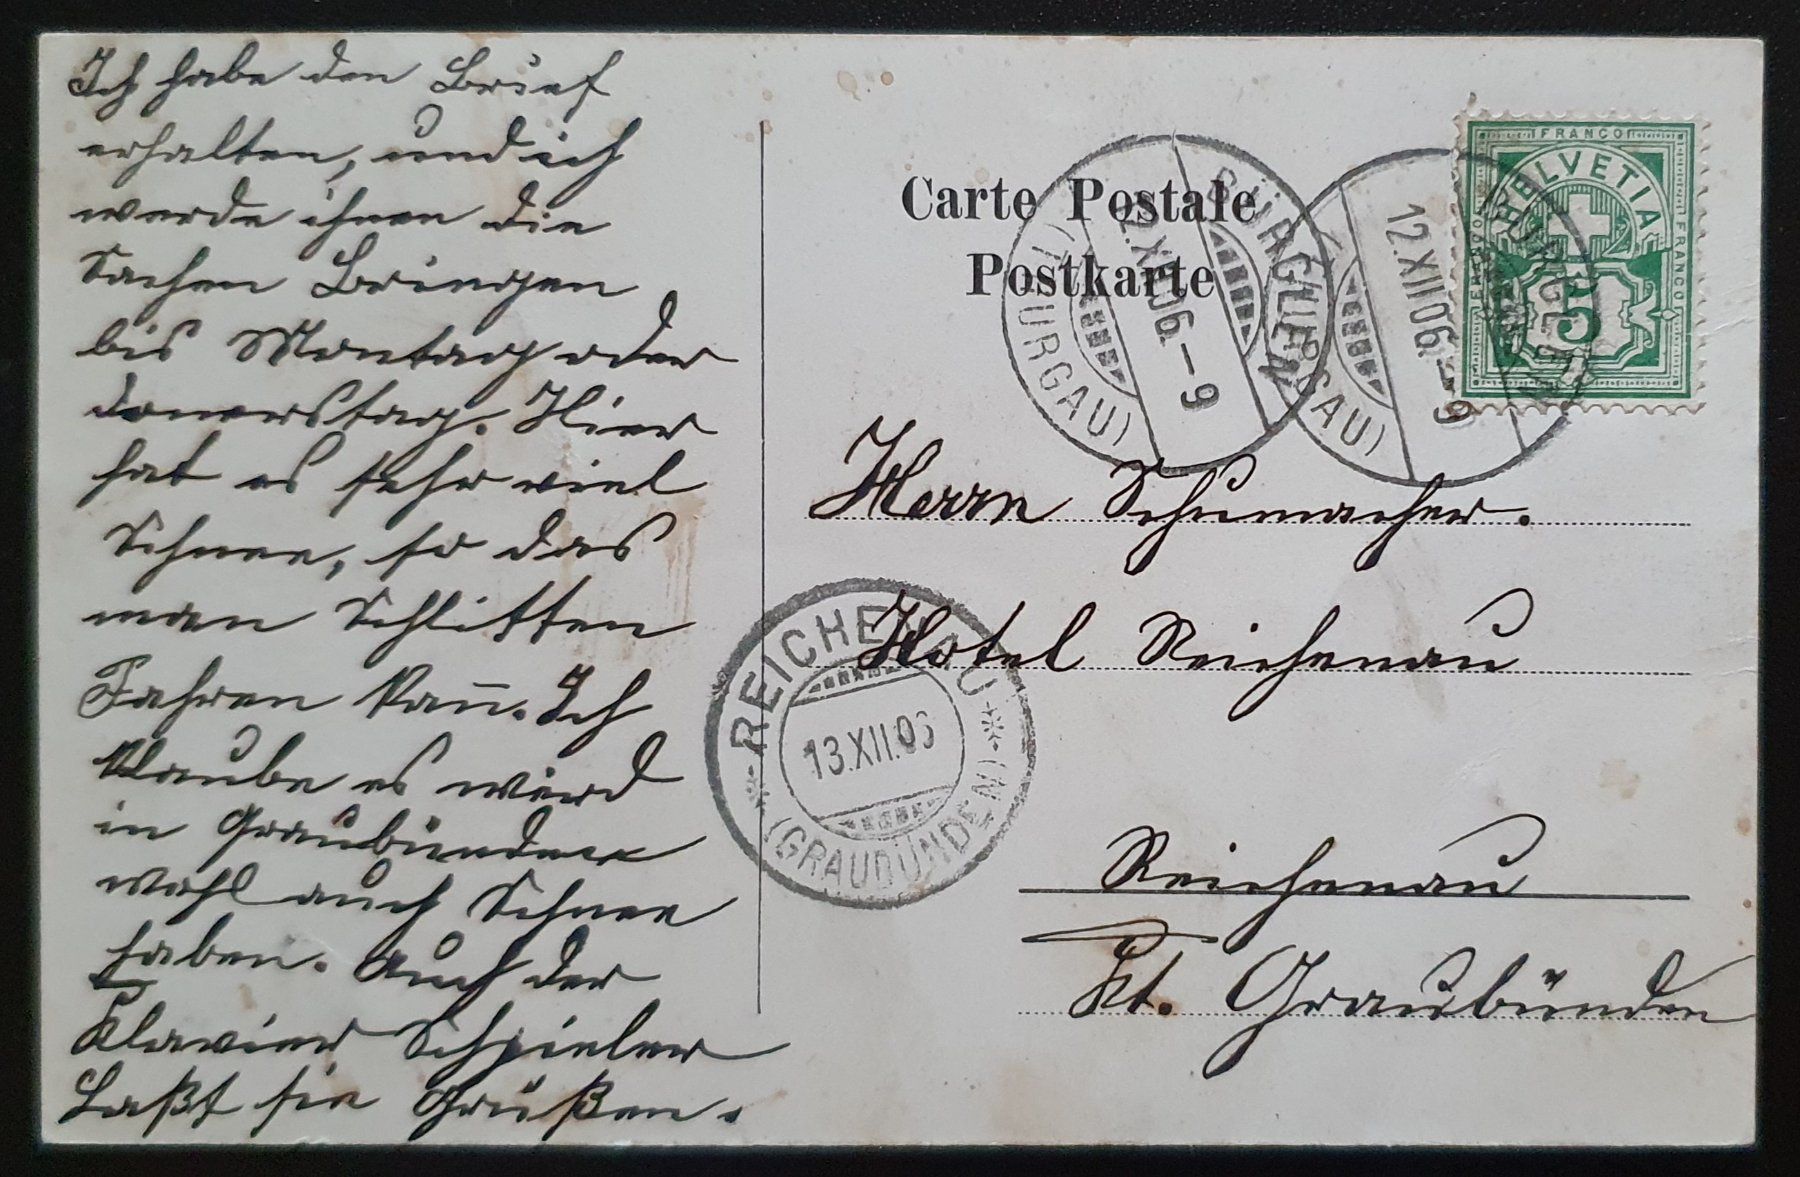 Ich habe den Brief
erhalten, und ich
werde ihnen die
Sachen Bringen
bis Montag oder
donerstag. Hier
hat es sehr viel
Schnee, so das
man Schlitten
Fahren kann. Ich
Klaube es wird
in Graubünden
wohl auch Schnee
haben. Auch der
Klavier Schpieler
Laßt sie Grüßen.
Carte Postale
Postkarte
BÜRGLEN
(THURGAU)
12.XII.06.–9
BÜRGLEN
(THURGAU)
12.XII.06.–9
FRANCO
HELVETIA
FRANCO
FRANCO
5
Herrn Schumacher.
Hotel Reichenau
Reichenau
Kt. Graubünden
REICHENAU
13.XII.06
(GRAUBÜNDEN)